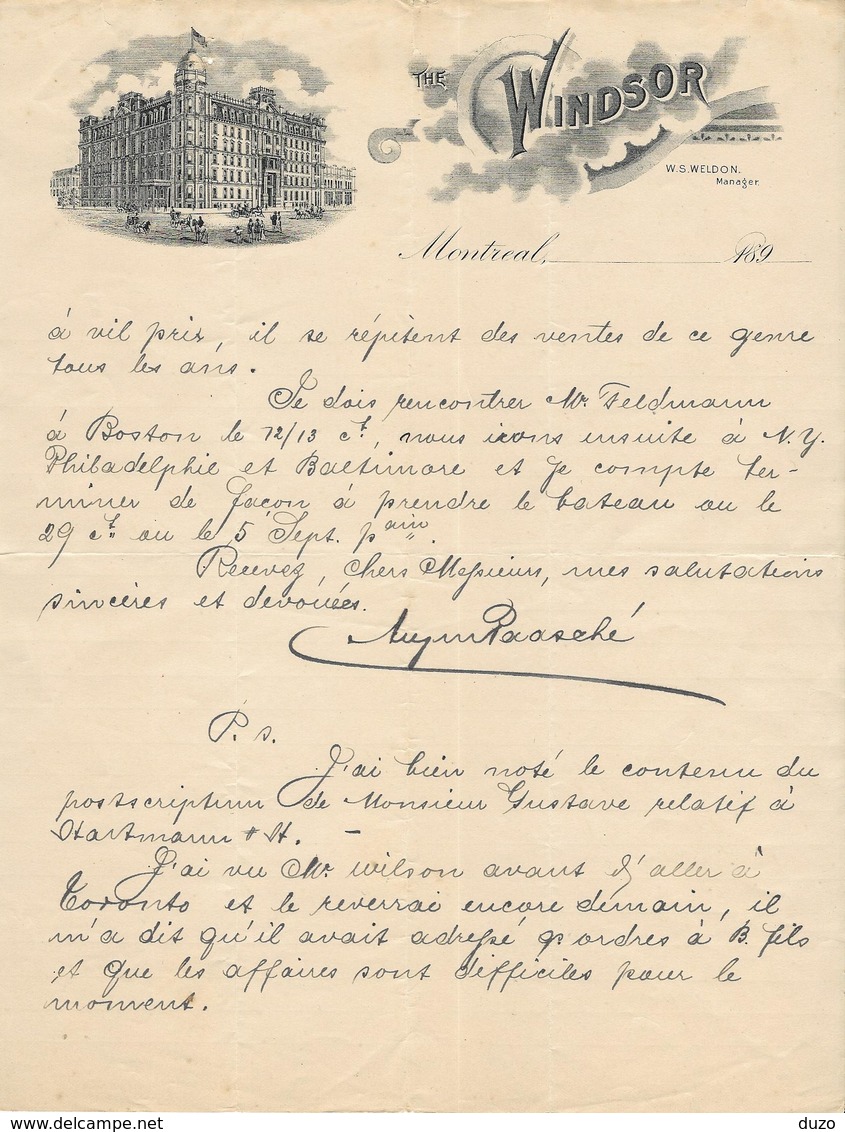 THE WINDSOR
W.S. WELDON.
Manager.
Montreal, 189
à vil prix, il se répitent des ventes de ce genre
tous les ans.
Je dois rencontrer Mr. Feldmann
à Boston le 12/13 ct, nous irons ensuite à N.Y.
Philadelphie et Baltimore et je compte ter-
miner de façon à prendre le bateau ou le
29 ct ou le 5 Sept. pain.
Recevez, chers Messieurs, mes salutations
sincères et dévouées.
Paasché
P.s.
J'ai bien noté le contenu du
postscriptum de Monsieur Gustave relatif à
Hartmann & H. –
J'ai vu Mr. Wilson avant d'aller à
Toronto et le reverrai encore demain, il
m'a dit qu'il avait adressé ordres à B. fils
et que les affaires sont difficiles pour le
moment.
delcampe.net
duzo